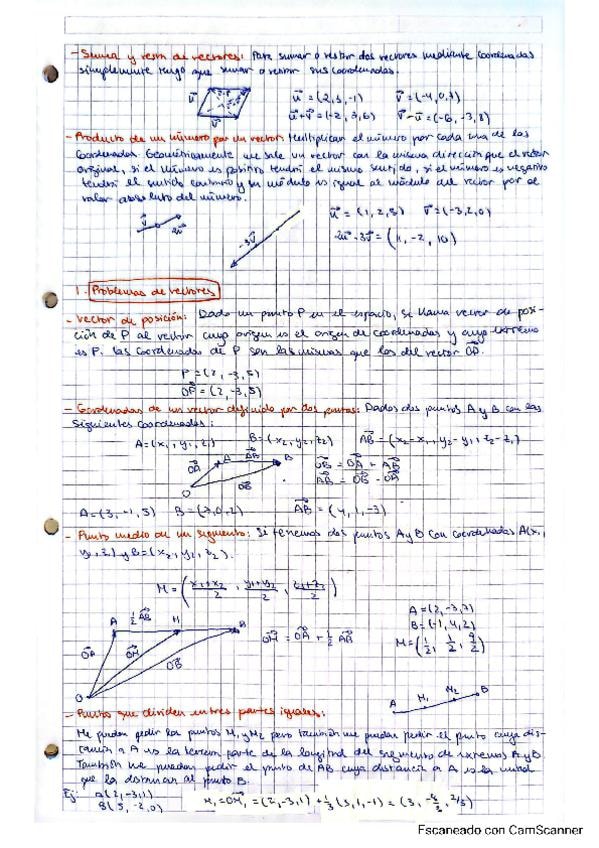 - Suma y resta de vectores: Para sumar o restar dos vectores mediante coordenadas
simplemente tengo que sumar o restar sus coordenadas.
u⃗ = (2,3,-1) v⃗ = (-4,0,7)
u⃗ v⃗ u⃗+v⃗ = (-2,3,6) v⃗-u⃗ = (-6,-3,8)
- Producto de un número por un vector: Multiplicar el número por cada una de las
coordenadas. Geométricamente me sale un vector con la misma dirección que el vector
original, si el número es positivo tendrá el mismo sentido, si el número es negativo
tendrá el sentido contrario y su módulo es igual al módulo del vector por el
valor absoluto del número.
v⃗ 2v⃗ -3v⃗ u⃗ = (1,2,5) v⃗ = (-3,2,0)
2u⃗-3v⃗ = (11,-2,10)
1. Problemas de vectores
- Vector de posición: Dado un punto P en el espacio, se llama vector de posi-
ción de P al vector cuyo origen es el origen de coordenadas y cuyo extremo
es P. Las coordenadas de P son las mismas que las del vector OP.
P = (2,-3,5)
OP = (2,-3,5)
- Coordenadas de un vector definido por dos puntos: Dados dos puntos A y B con las
siguientes coordenadas:
A = (x₁, y₁, z₁) B = (x₂, y₂, z₂) AB = (x₂-x₁, y₂-y₁, z₂-z₁)
O A B OA AB OB
OB = OA + AB
AB = OB - OA
A = (3,-1,5) B = (7,0,2) AB = (4,1,-3)
- Punto medio de un segmento: Si tenemos dos puntos A y B con coordenadas A(x₁,
y₁, z₁) y B = (x₂, y₂, z₂).
M = (x₁+x₂/2, y₁+y₂/2, z₁+z₂/2)
A = (2,-3,7)
B = (-1,4,2)
M = (1/2, 1/2, 9/2)
A ½ AB M B
OA OM OB OM = OA + ½ AB
O
A M₁ M₂ B
- Puntos que dividen en tres partes iguales:
Me pueden pedir los puntos M₁ y M₂ pero también me pueden pedir el punto cuya dis-
tancia a A es la tercera parte de la longitud del segmento de extremos A y B.
También me pueden pedir el punto de AB cuya distancia a A es la mitad
que la distancia al punto B.
Ej: A(2,-3,1)
B(5,-2,0) M₁ = OM₁ = (2,-3,1) + 1/3 (3,1,-1) = (3, -8/3, 2/3)
Escaneado con CamScanner